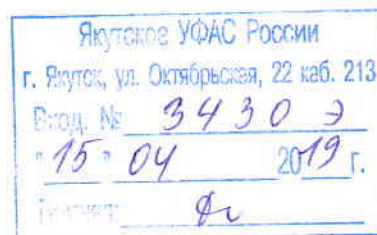 Якутское УФАС России
г. Якутск, ул. Октябрьская, 22 каб. 213
Вход. № 3430 Э
"15" 04 2019 г.